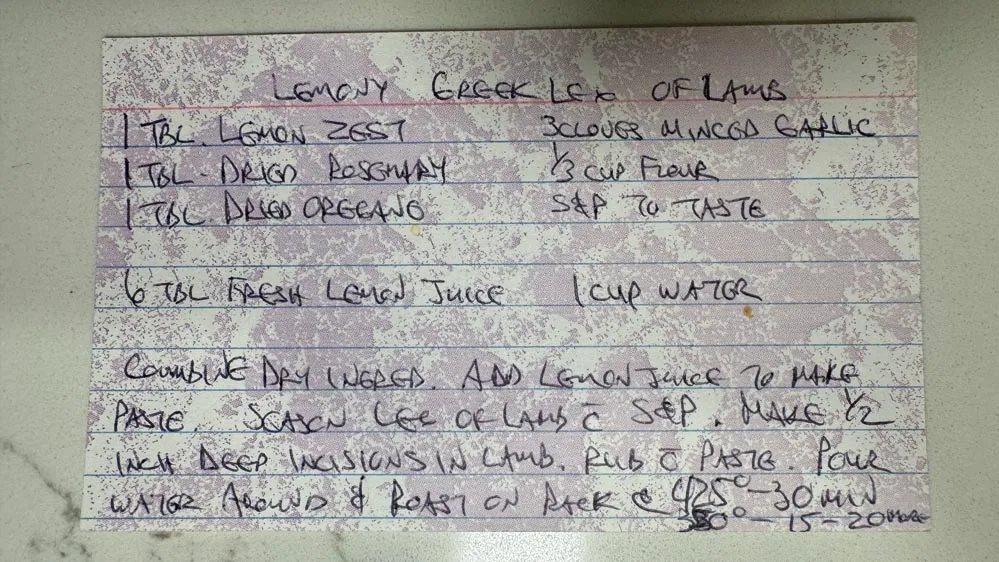 LEMONY GREEK LEG OF LAMB
1 TBL. LEMON ZEST 3 CLOVES MINCED GARLIC
1 TBL. DRIED ROSEMARY 1/3 CUP FLOUR
1 TBL DRIED OREGANO S&P TO TASTE
6 TBL FRESH LEMON JUICE 1 CUP WATER
COMBINE DRY INGRED. ADD LEMON JUICE TO MAKE
PASTE. SEASON LEG OF LAMB c̄ S&P. MAKE 1/2
INCH DEEP INCISIONS IN LAMB. RUB c̄ PASTE. POUR
WATER AROUND & ROAST ON RACK @ 425° - 30 MIN
350° - 15 - 20 MORE